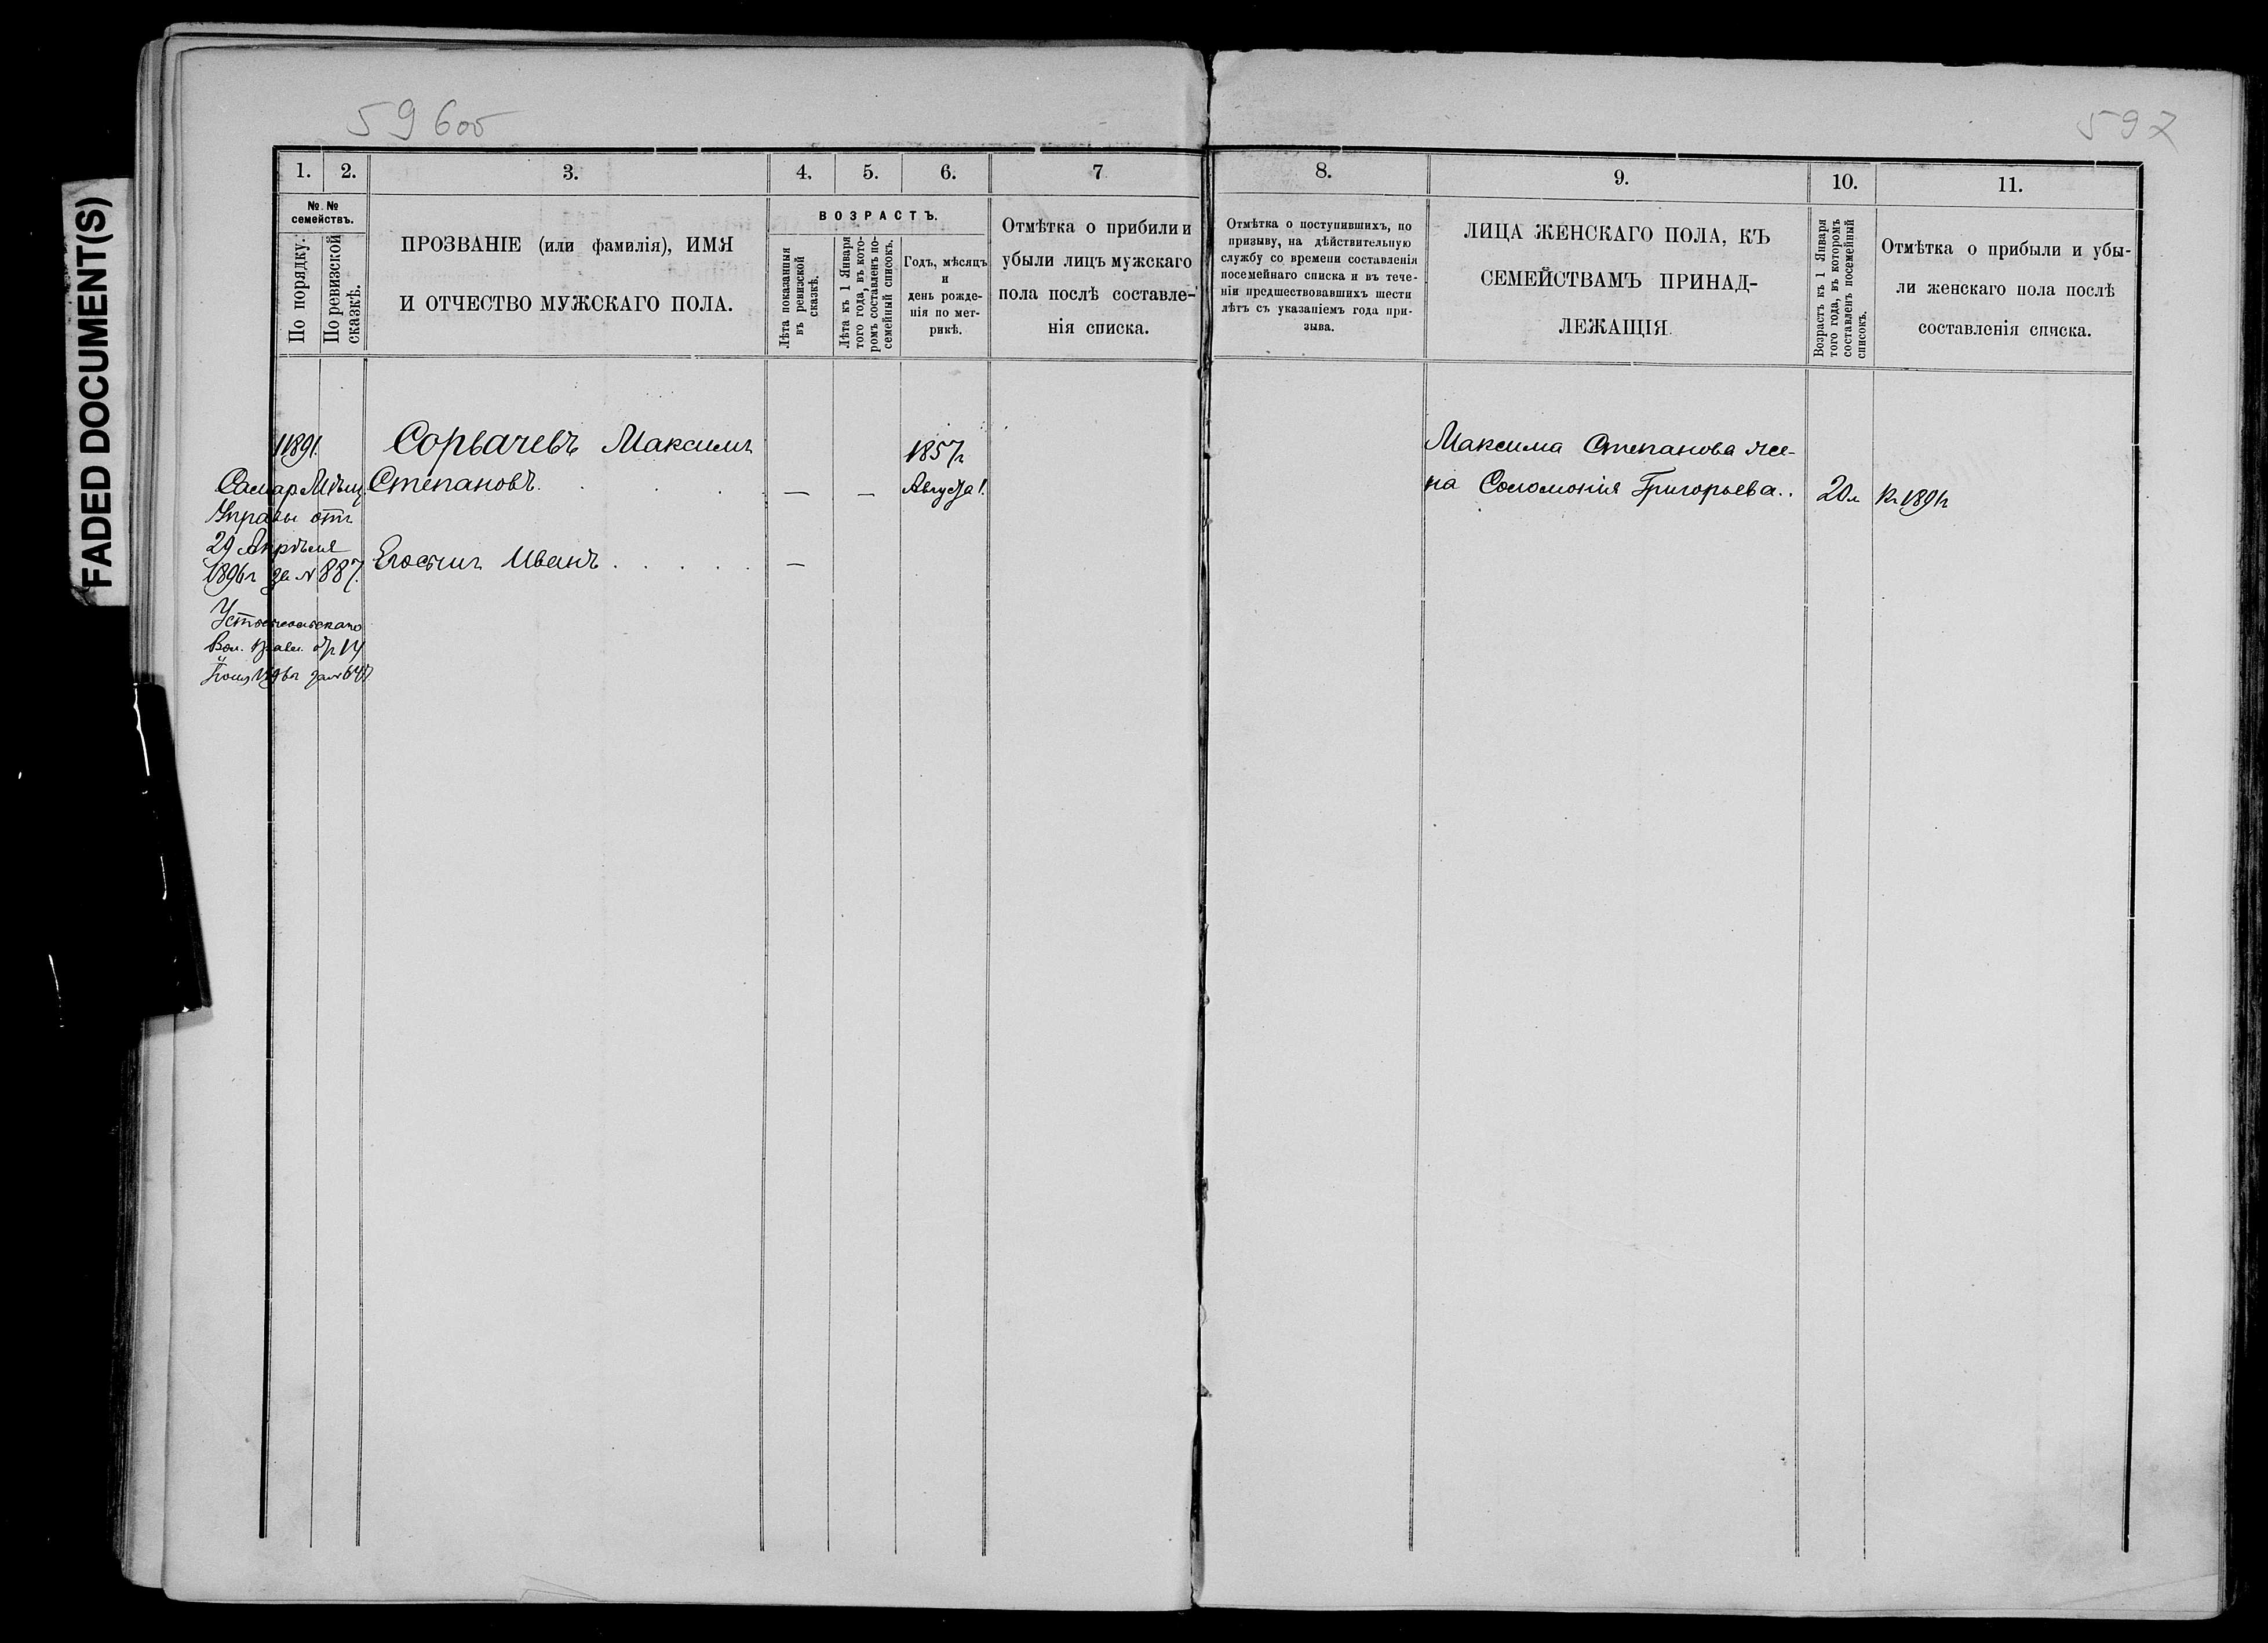 FADED DOCUMENT(S)
59 6об
597
1.
2.
3.
4.
5.
6.
7
8.
9.
10.
11.
№ №
семействъ.
По порядку.
По ревизской
сказкѣ.
ПРОЗВАНІЕ (или фамилія), ИМЯ
И ОТЧЕСТВО МУЖСКАГО ПОЛА.
ВОЗРАСТЪ.
Лѣта показанныя
въ ревизской
сказкѣ.
Лѣта къ 1 Января
того года, въ кото-
ромъ составленъ по-
семейный списокъ.
Годъ, мѣсяцъ
и
день рожде-
нія по мет-
рикѣ.
Отмѣтка о прибили и
убыли лицъ мужскаго
пола послѣ составле-
нія списка.
Отмѣтка о поступившихъ, по
призыву, на дѣйствительную
службу со времени составленія
посемейнаго списка и въ тече-
ніи предшествовавшихъ шести
лѣтъ съ указаніемъ года при-
зыва.
ЛИЦА ЖЕНСКАГО ПОЛА, КЪ
СЕМЕЙСТВАМЪ ПРИНАД-
ЛЕЖАЩІЯ.
Возрастъ къ 1 Января
того года, въ которомъ
составленъ посемейный
списокъ.
Отмѣтка о прибыли и убы-
ли женскаго пола послѣ
составленія списка.
11891.
Самар. Мѣщ.
Управы отъ
29 Апрѣля
1896г за № 887.
Вол. Правл. от 14
1896г за №
Сорвачевъ Максимъ
Степановъ
— —
1857г
Августа 1.
Иванъ
—
Максима Степанова же-
на Соломонія Григорьева..
20л
Къ 1891г